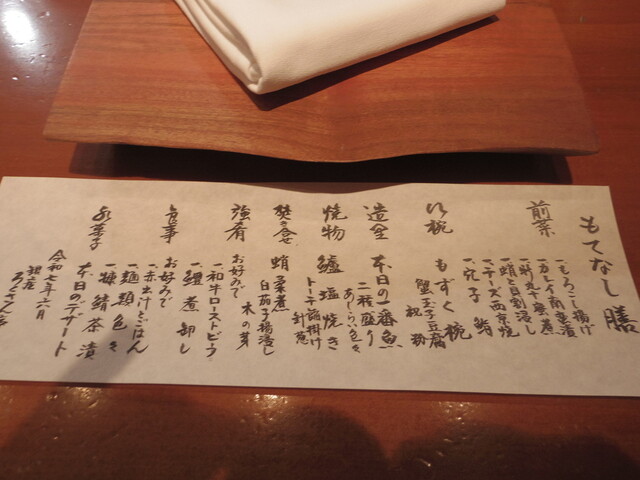 もてなし膳
前菜
一、もろこし揚げ
一、カレイ南蛮漬
一、蛸と胡瓜浸し
一、チーズ西京焼
一、穴子鮨
吸椀
もずく椀
蟹玉子豆腐
造里
本日の一番魚
二種盛り
あしらい色々
焼物
鱸塩焼き
トマト餡掛け
針葱
焚き合せ
蛸柔煮
白茄子揚浸し
木の芽
強肴
お好みで
一、和牛ローストビーフ
一、鱧煮卸し
食事
お好みで
一、赤出汁とごはん
一、麺類色々
一、鯖茶漬
水菓子
本日のデザート
令和七年六月
銀座
ろくさん亭